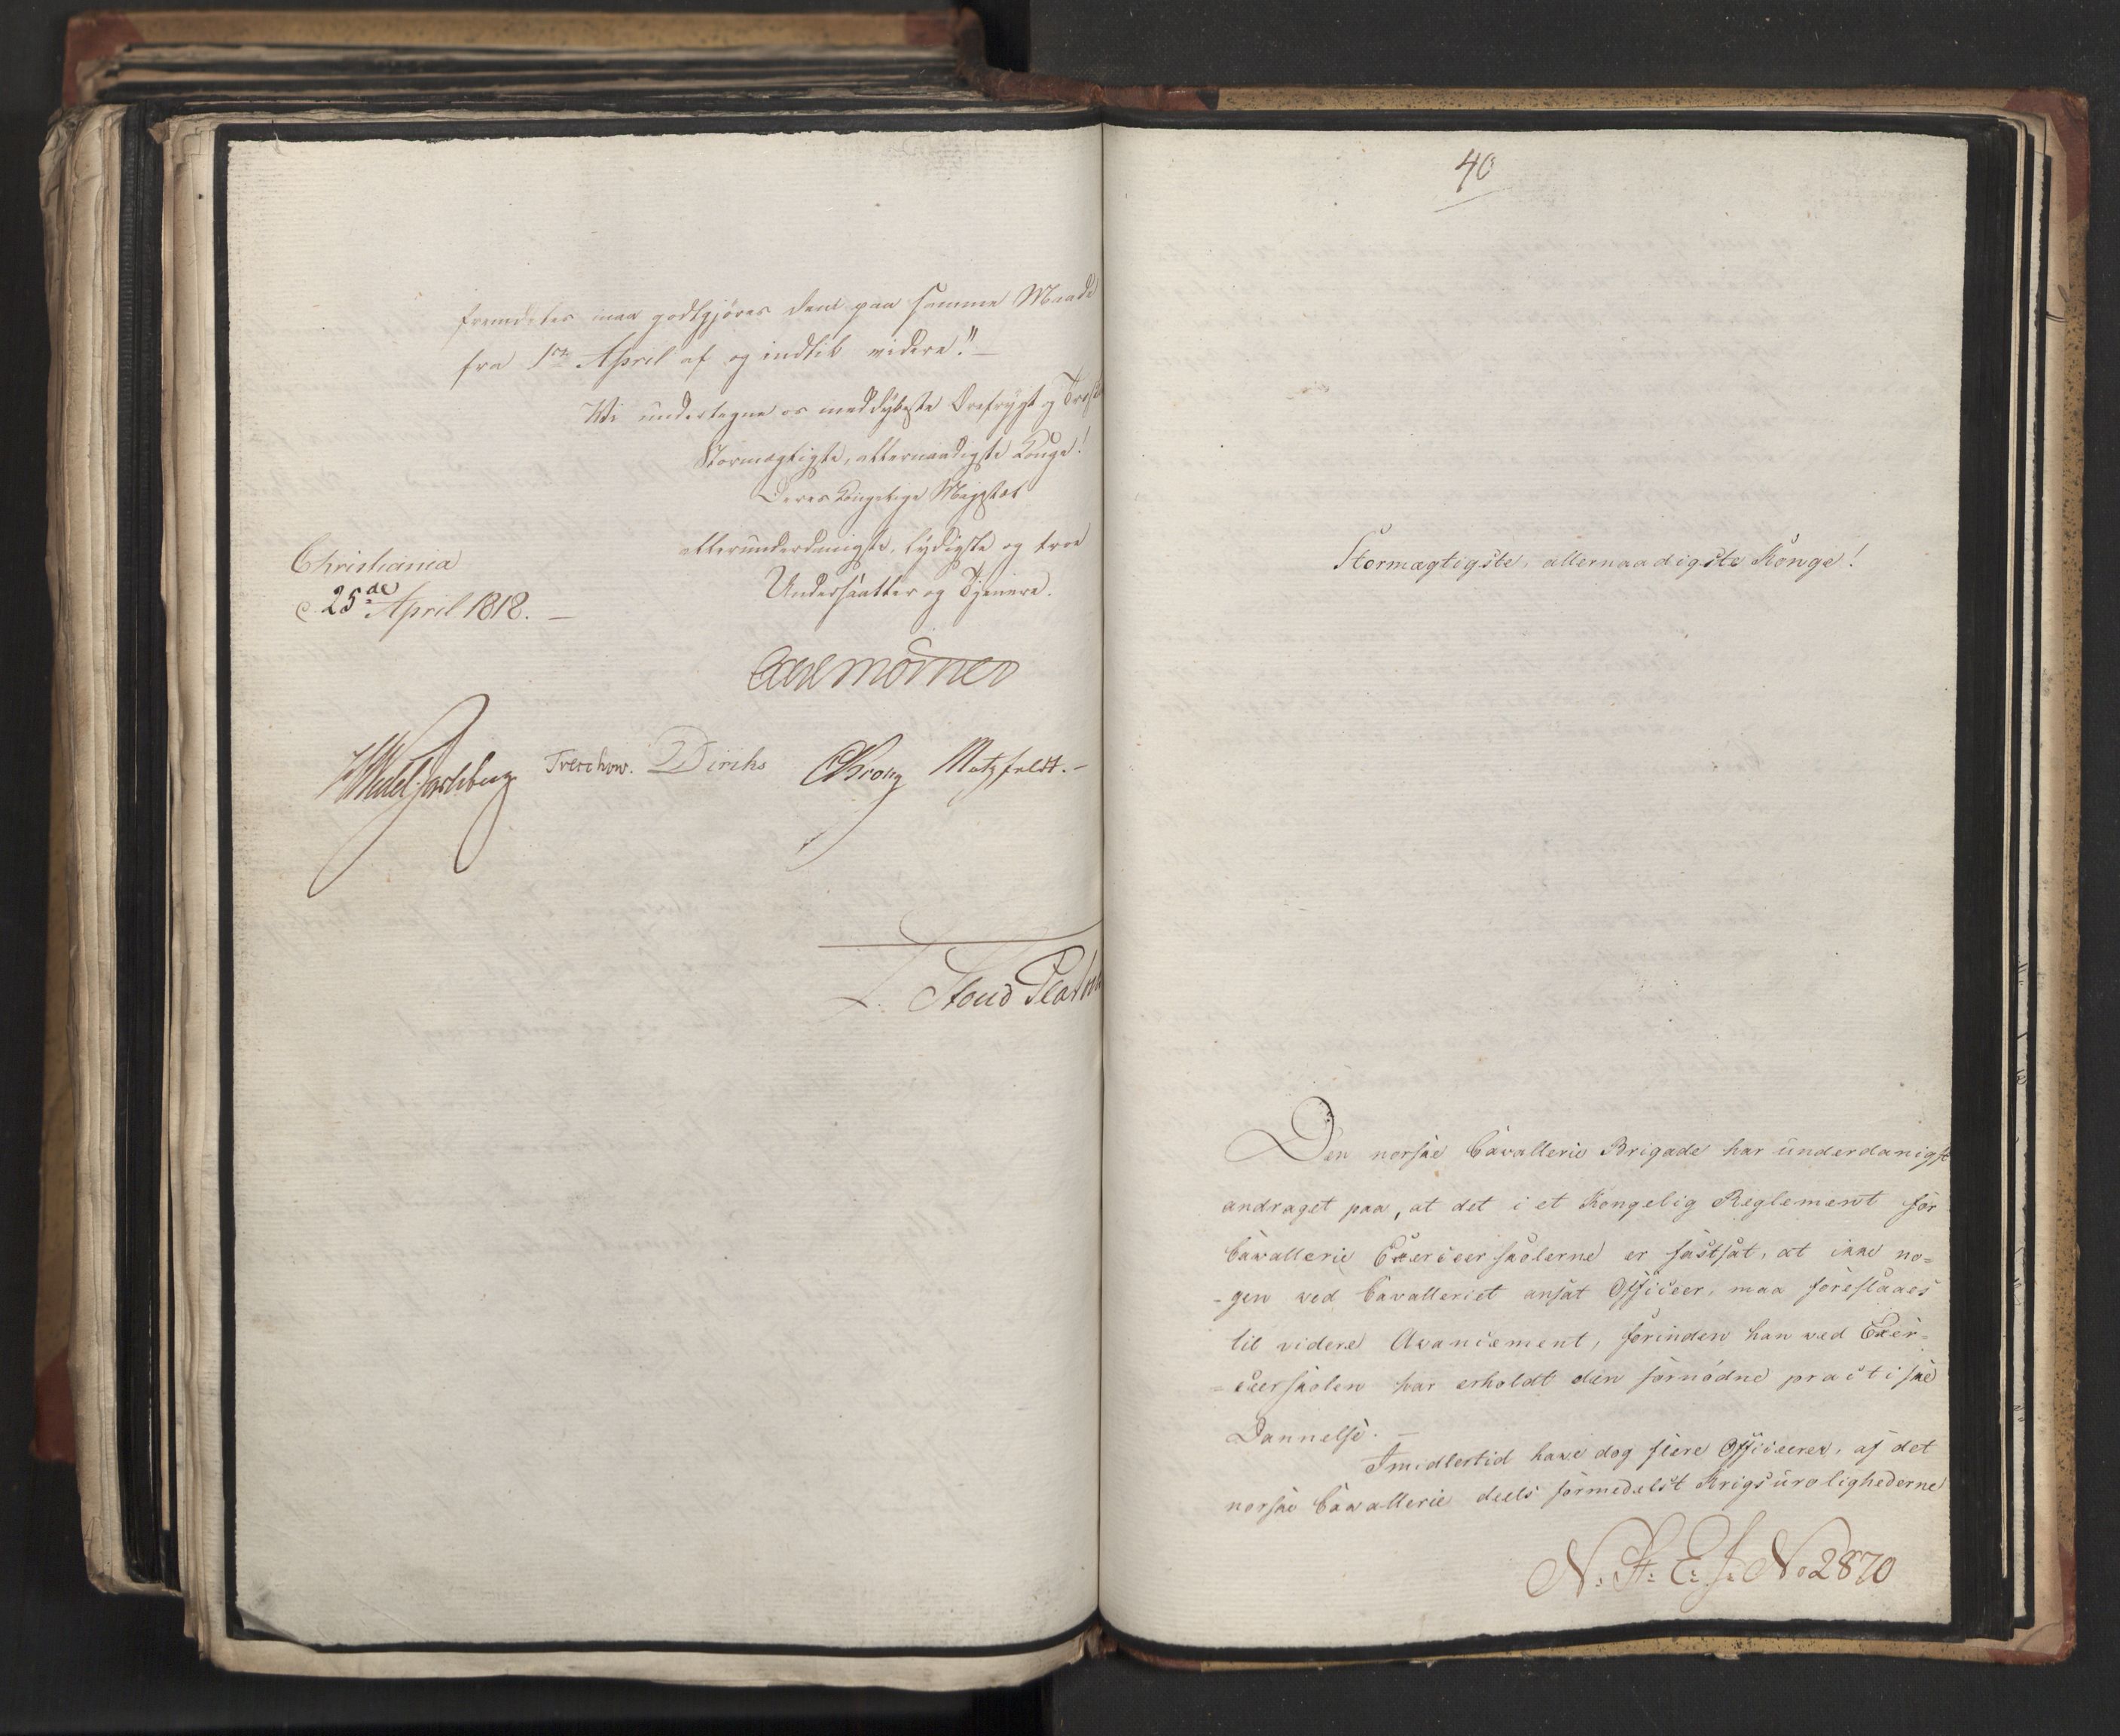 fremdeles maa godtgjöres dem paa samme Maade
fra 1ste April af og indtil videre."
Wi undertegne os med dybeste Ærefrygt og
Stormægtigste, allernaadigste Konge!
Deres Kongelige Majestæt
allerunderdanigste, lydigste og troe
Undersaatter og Tjenere.
Christiania
25de April 1818.
Axel Mörner
Wedel Jarlsberg Treschow. Diriks CKrohg Motzfeldt.
L. Stoud Platou
40
Stormægtigste, allernaadigste Konge!
Den norske Cavallerie Brigade har underdanigst
andraget paa, at det i et Kongelig Reglement for
Cavallerie Exerceerskolerne er fastsat, at ikke no=
=gen ved Cavalleriet ansat Officeer, maa foreslaaes
til videre Avancement, forinden han ved Exer=
=ceerskolen har erholdt den fornödne practiske
Dannelse.
Imidlertid have dog flere Officerer, af det
norske Cavallerie deels formedelst Krigsurolighederne
N: St: E: J: No 2870